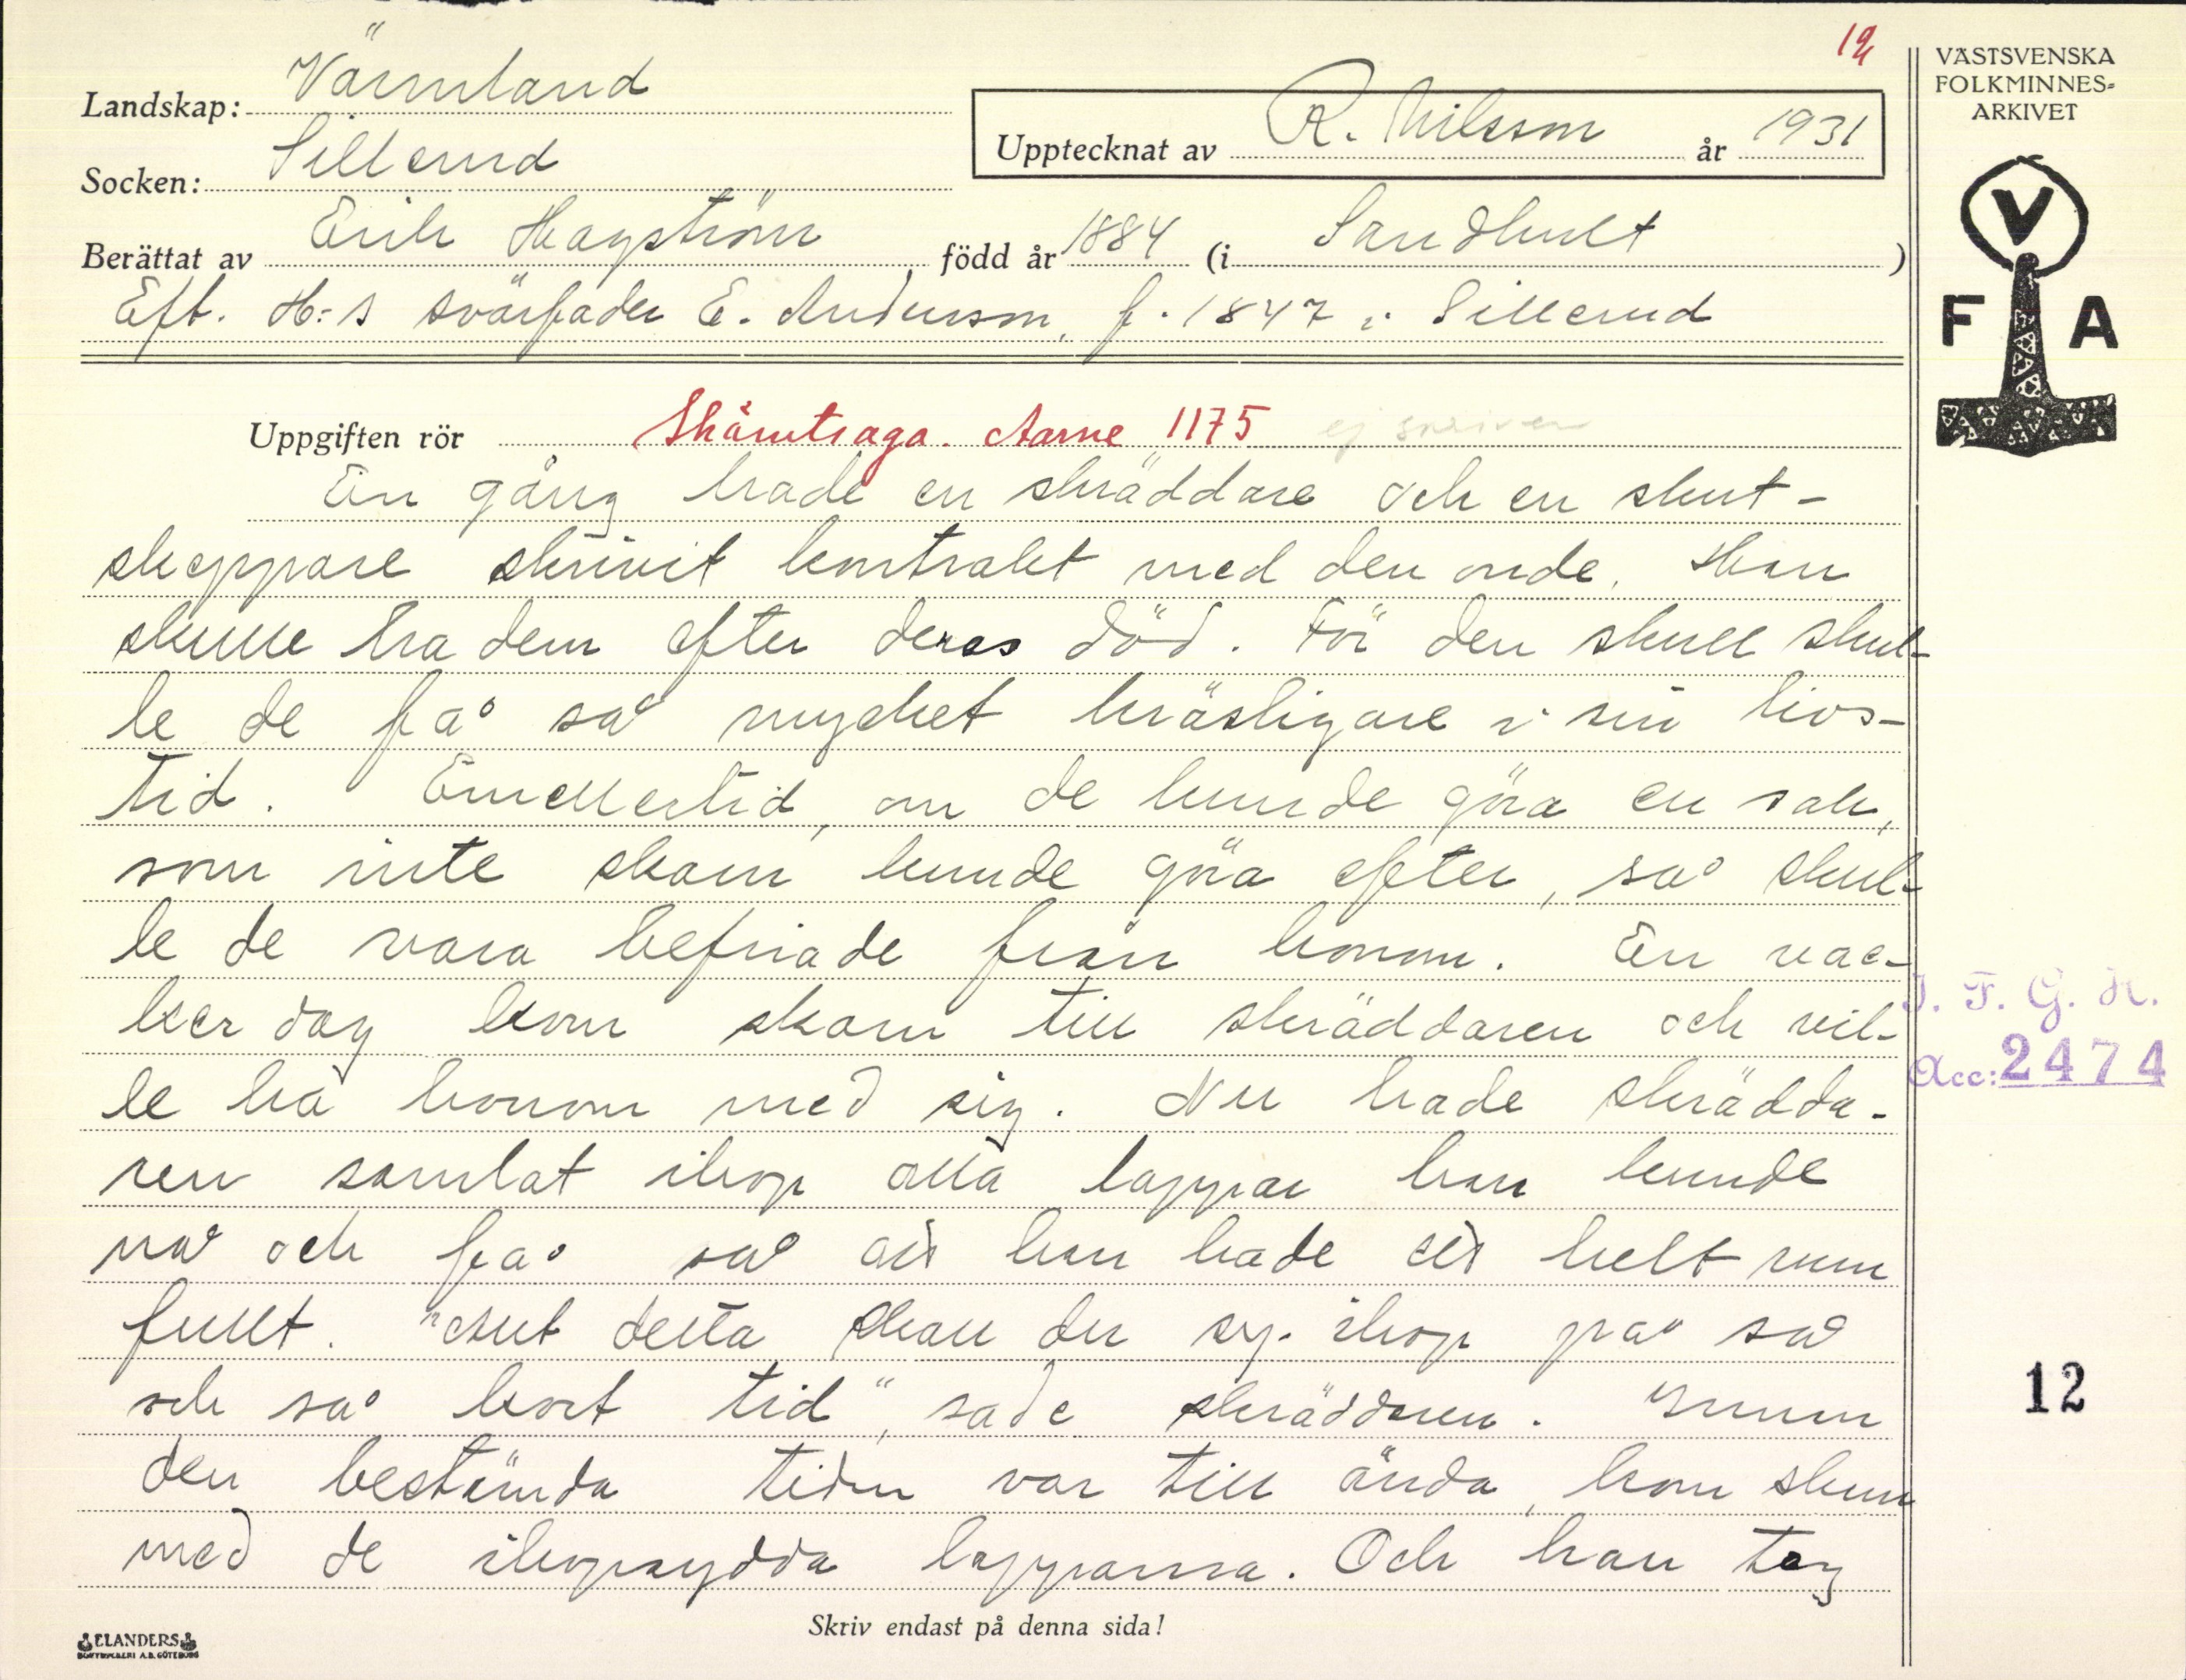 12
VÄSTSVENSKA
FOLKMINNES-
ARKIVET
Landskap: Värmland
Upptecknat av R. Nilsson år 1931
Socken: Sillerud
Berättat av Erik Hagström, född år 1884 (i Sandhult)
Eft. H:s svärfader E. Andersson, f. 1847 i Sillerud
V
F A
Uppgiften rör Skämtsaga. Aarne 1175 ej skriven
En gång hade en skräddare och en skut-
skeppare skrivit kontrakt med den onde. Han
skulle ha dem efter deras död. För den skull skul-
le de få så mycket kräsligare i sin livs-
tid. Emellertid, om de kunde göra en sak,
som inte skam kunde göra efter, så skul-
le de vara befriade från honom. En vac-
ker dag kom skam till skräddaren och vil-
le ha honom med sig. Nu hade skrädda-
ren samlat ihop alla lappar han kunde
nå och få så att han hade ett helt rum
fullt. "Allt detta skall du sy ihop på så
och så kort tid", sade skräddaren. Innan
den bestämda tiden var till ända, kom skam
med de ihopsydda lapparna. Och han tog
J. F. G. H.
Acc: 2474
12
Skriv endast på denna sida!
ELANDERS
BOKTRYCKERI A.B. GÖTEBORG